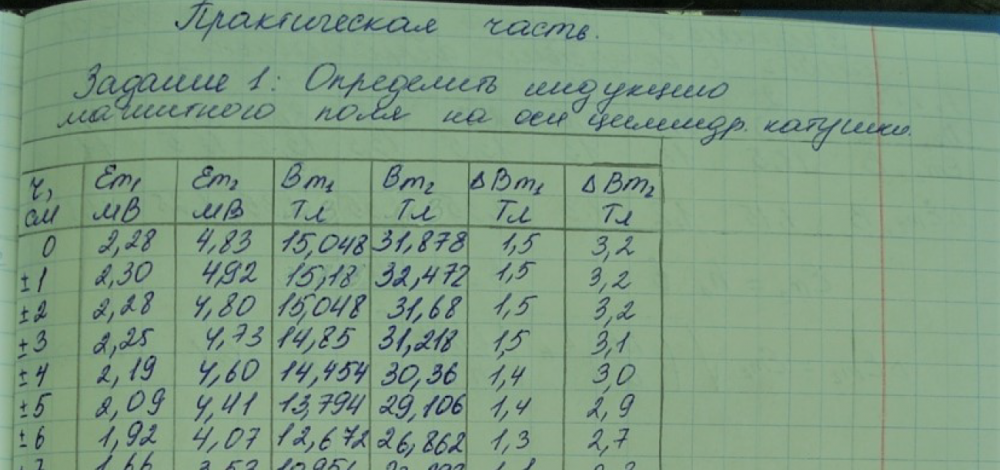 Практическая часть.
Задание 1: Определить индукцию
магнитного поля на оси цилиндр. катушки.
r, Ɛm₁ Ɛm₂ Bm₁ Bm₂ ΔBm₁ ΔBm₂
см мВ мВ Тл Тл Тл Тл
0 2,28 4,83 15,048 31,878 1,5 3,2
±1 2,30 4,92 15,18 32,472 1,5 3,2
±2 2,28 4,80 15,048 31,68 1,5 3,2
±3 2,25 4,73 14,85 31,218 1,5 3,1
±4 2,19 4,60 14,454 30,36 1,4 3,0
±5 2,09 4,41 13,794 29,106 1,4 2,9
±6 1,92 4,07 12,672 26,862 1,3 2,7